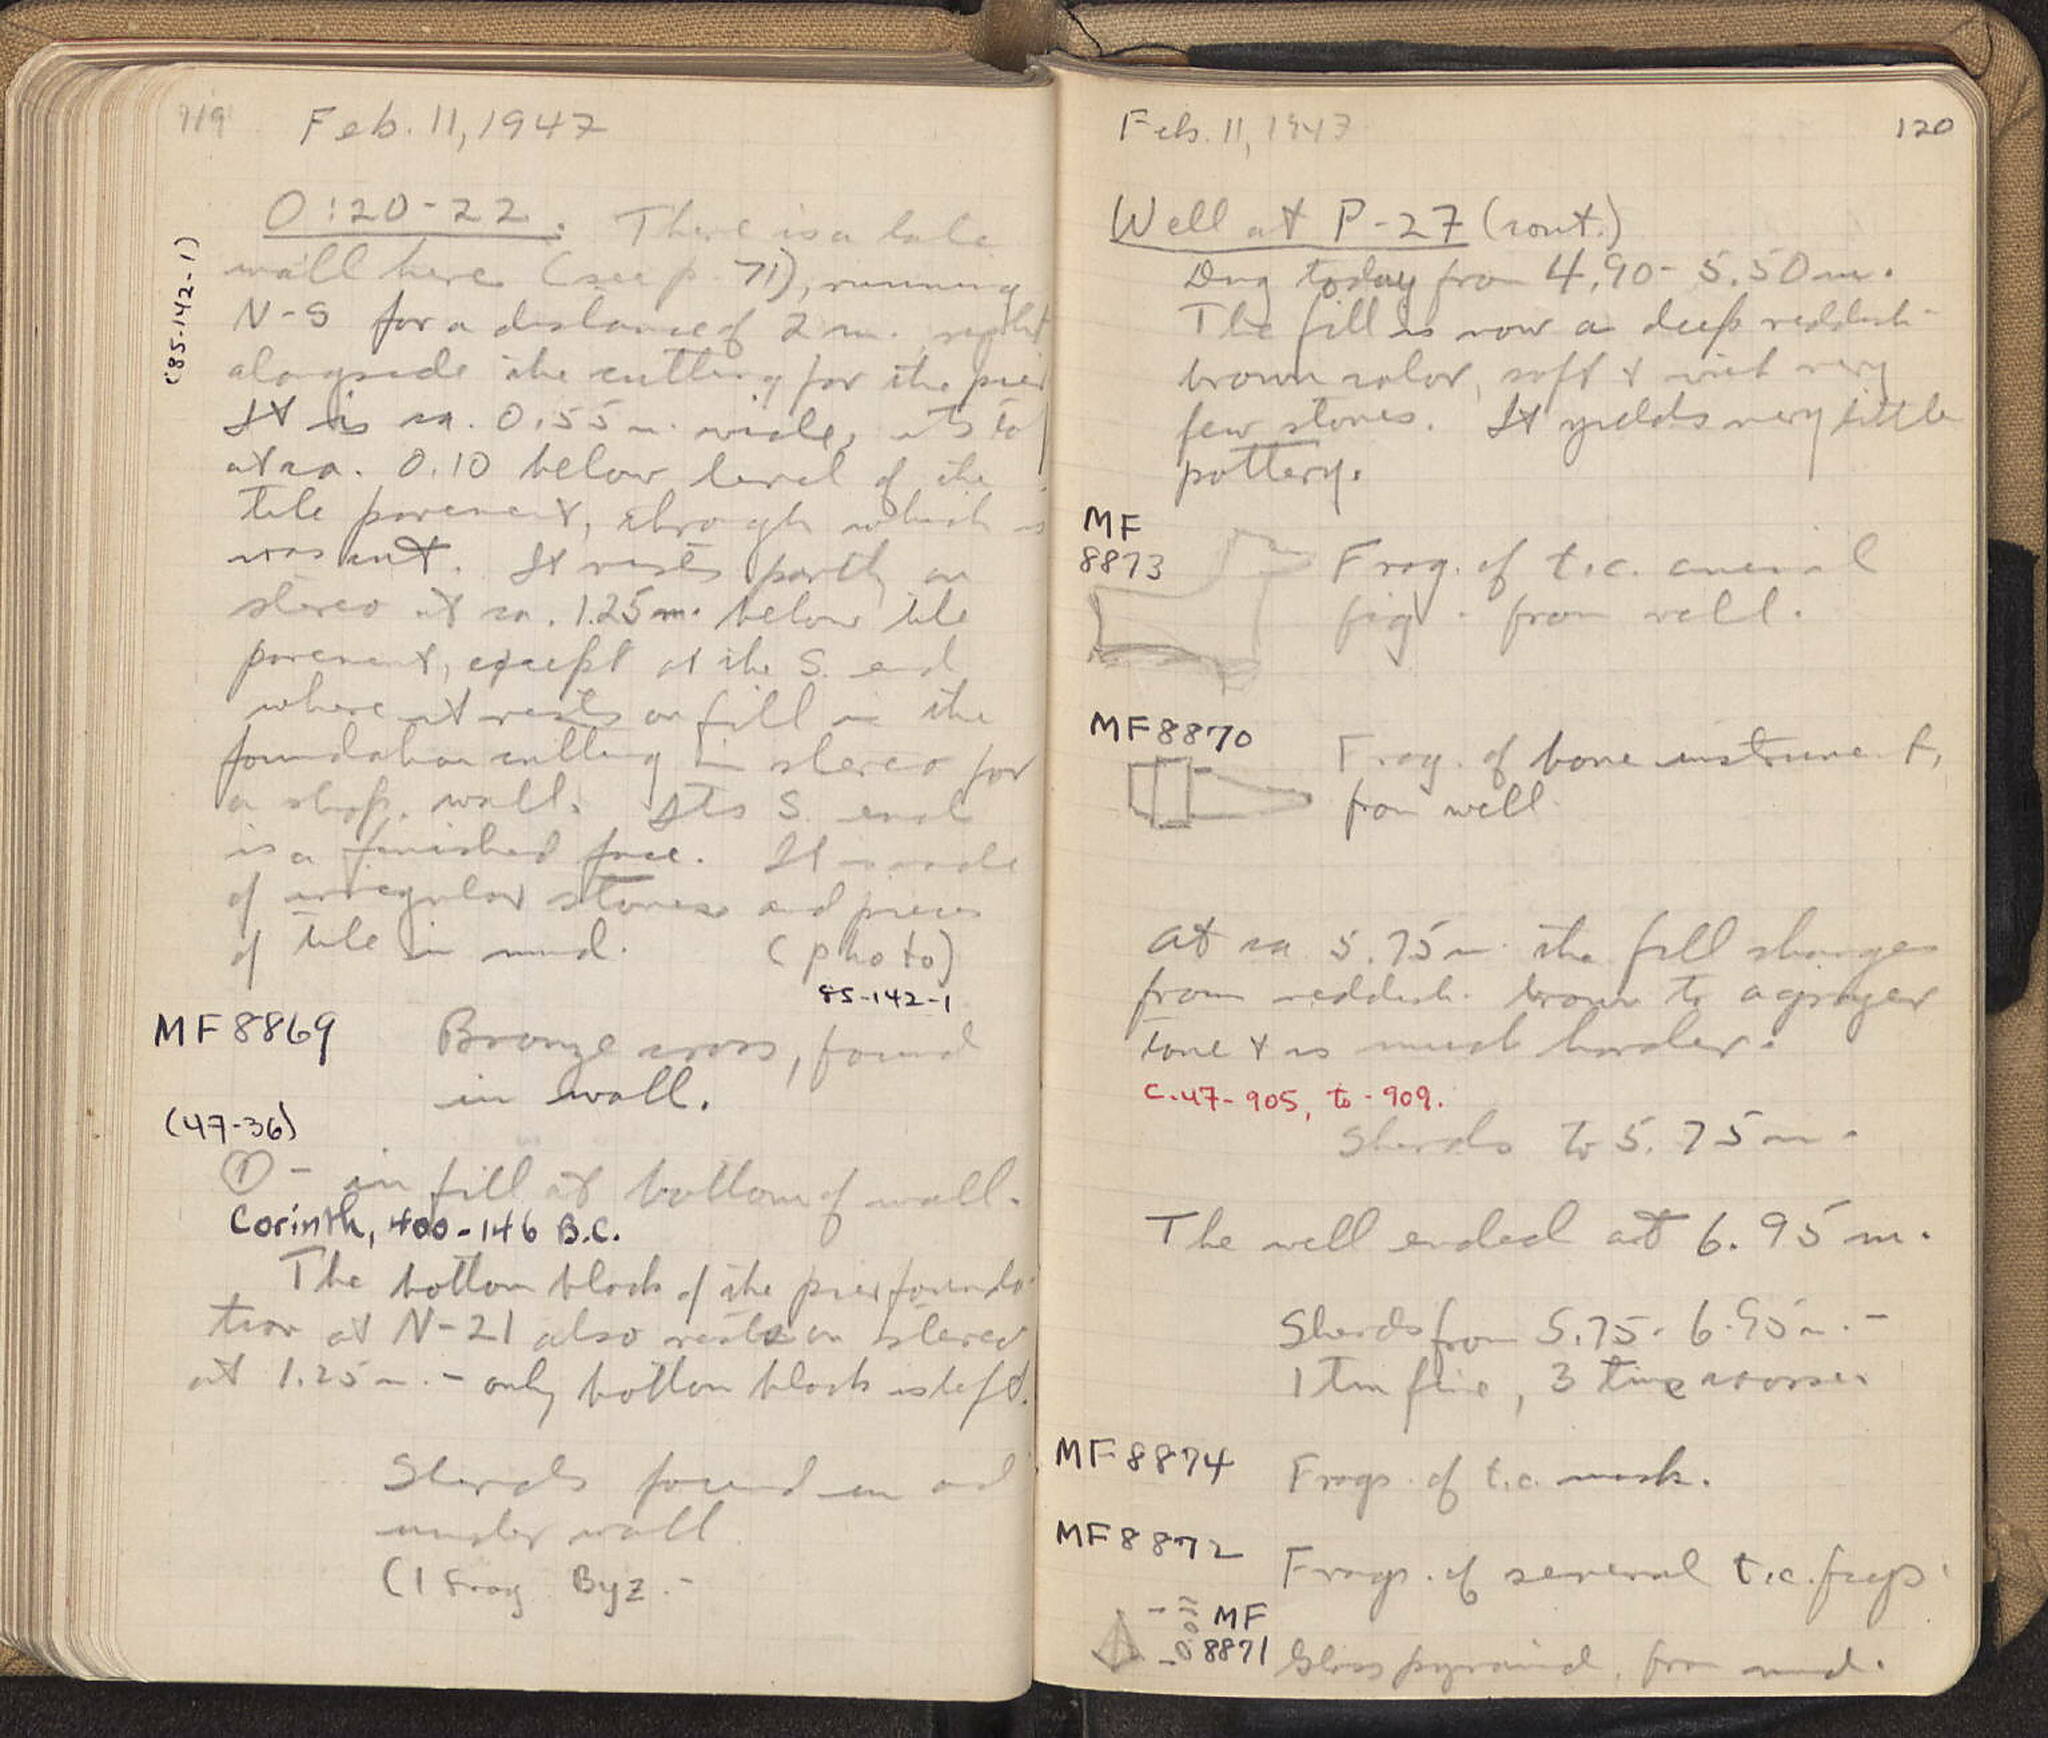 119 Feb. 11, 1947
O:20-22. There is a late
wall here (see p. 71), running
N-S for a distance of 2 m. right
alongside the cutting for the pier
It is ca. 0.55 m. wide, its top
at ca. 0.10 below level of the
tile pavement, through which it
was cut. It rests partly on
stereo at ca. 1.25 m. below tile
pavement, except at the S. end
where it rests on fill in the
foundation cutting in stereo for
a shop wall. Its S. end
is a finished face. It is made
of irregular stones and pieces
of tile in mud. (photo)
85-142-1
(85-142-1)
MF 8869 Bronze cross, found
in wall.
(47-36)
① - in fill at bottom of wall.
Corinth, 400-146 B.C.
The bottom block of the pier founda-
tion at N-21 also rests on stereo
at 1.25 m. - only bottom block is left.
Sherds found in and
under wall
(1 frag Byz. -
Feb. 11, 1947 120
Well at P-27 (cont.)
Dug today from 4.90-5.50 m.
The fill is now a deep reddish-
brown color, soft & with very
few stones. It yields very little
pottery.
MF
8873
Frag. of t.c. animal
fig. - from well.
MF 8870
Frag. of bone instrument,
from well
At ca 5.75 m. the fill changes
from reddish brown to a grayer
tone & is much harder.
C.47-905, to -909.
Sherds to 5.75 m.
The well ended at 6.95 m.
Sherds from 5.75-6.95 m. -
1 tin fine, 3 tins coarse.
MF 8874 Frags. of t.c. mask.
MF 8872 Frags. of several t.c. figs.
MF
8871 Glass pyramid, from mud.